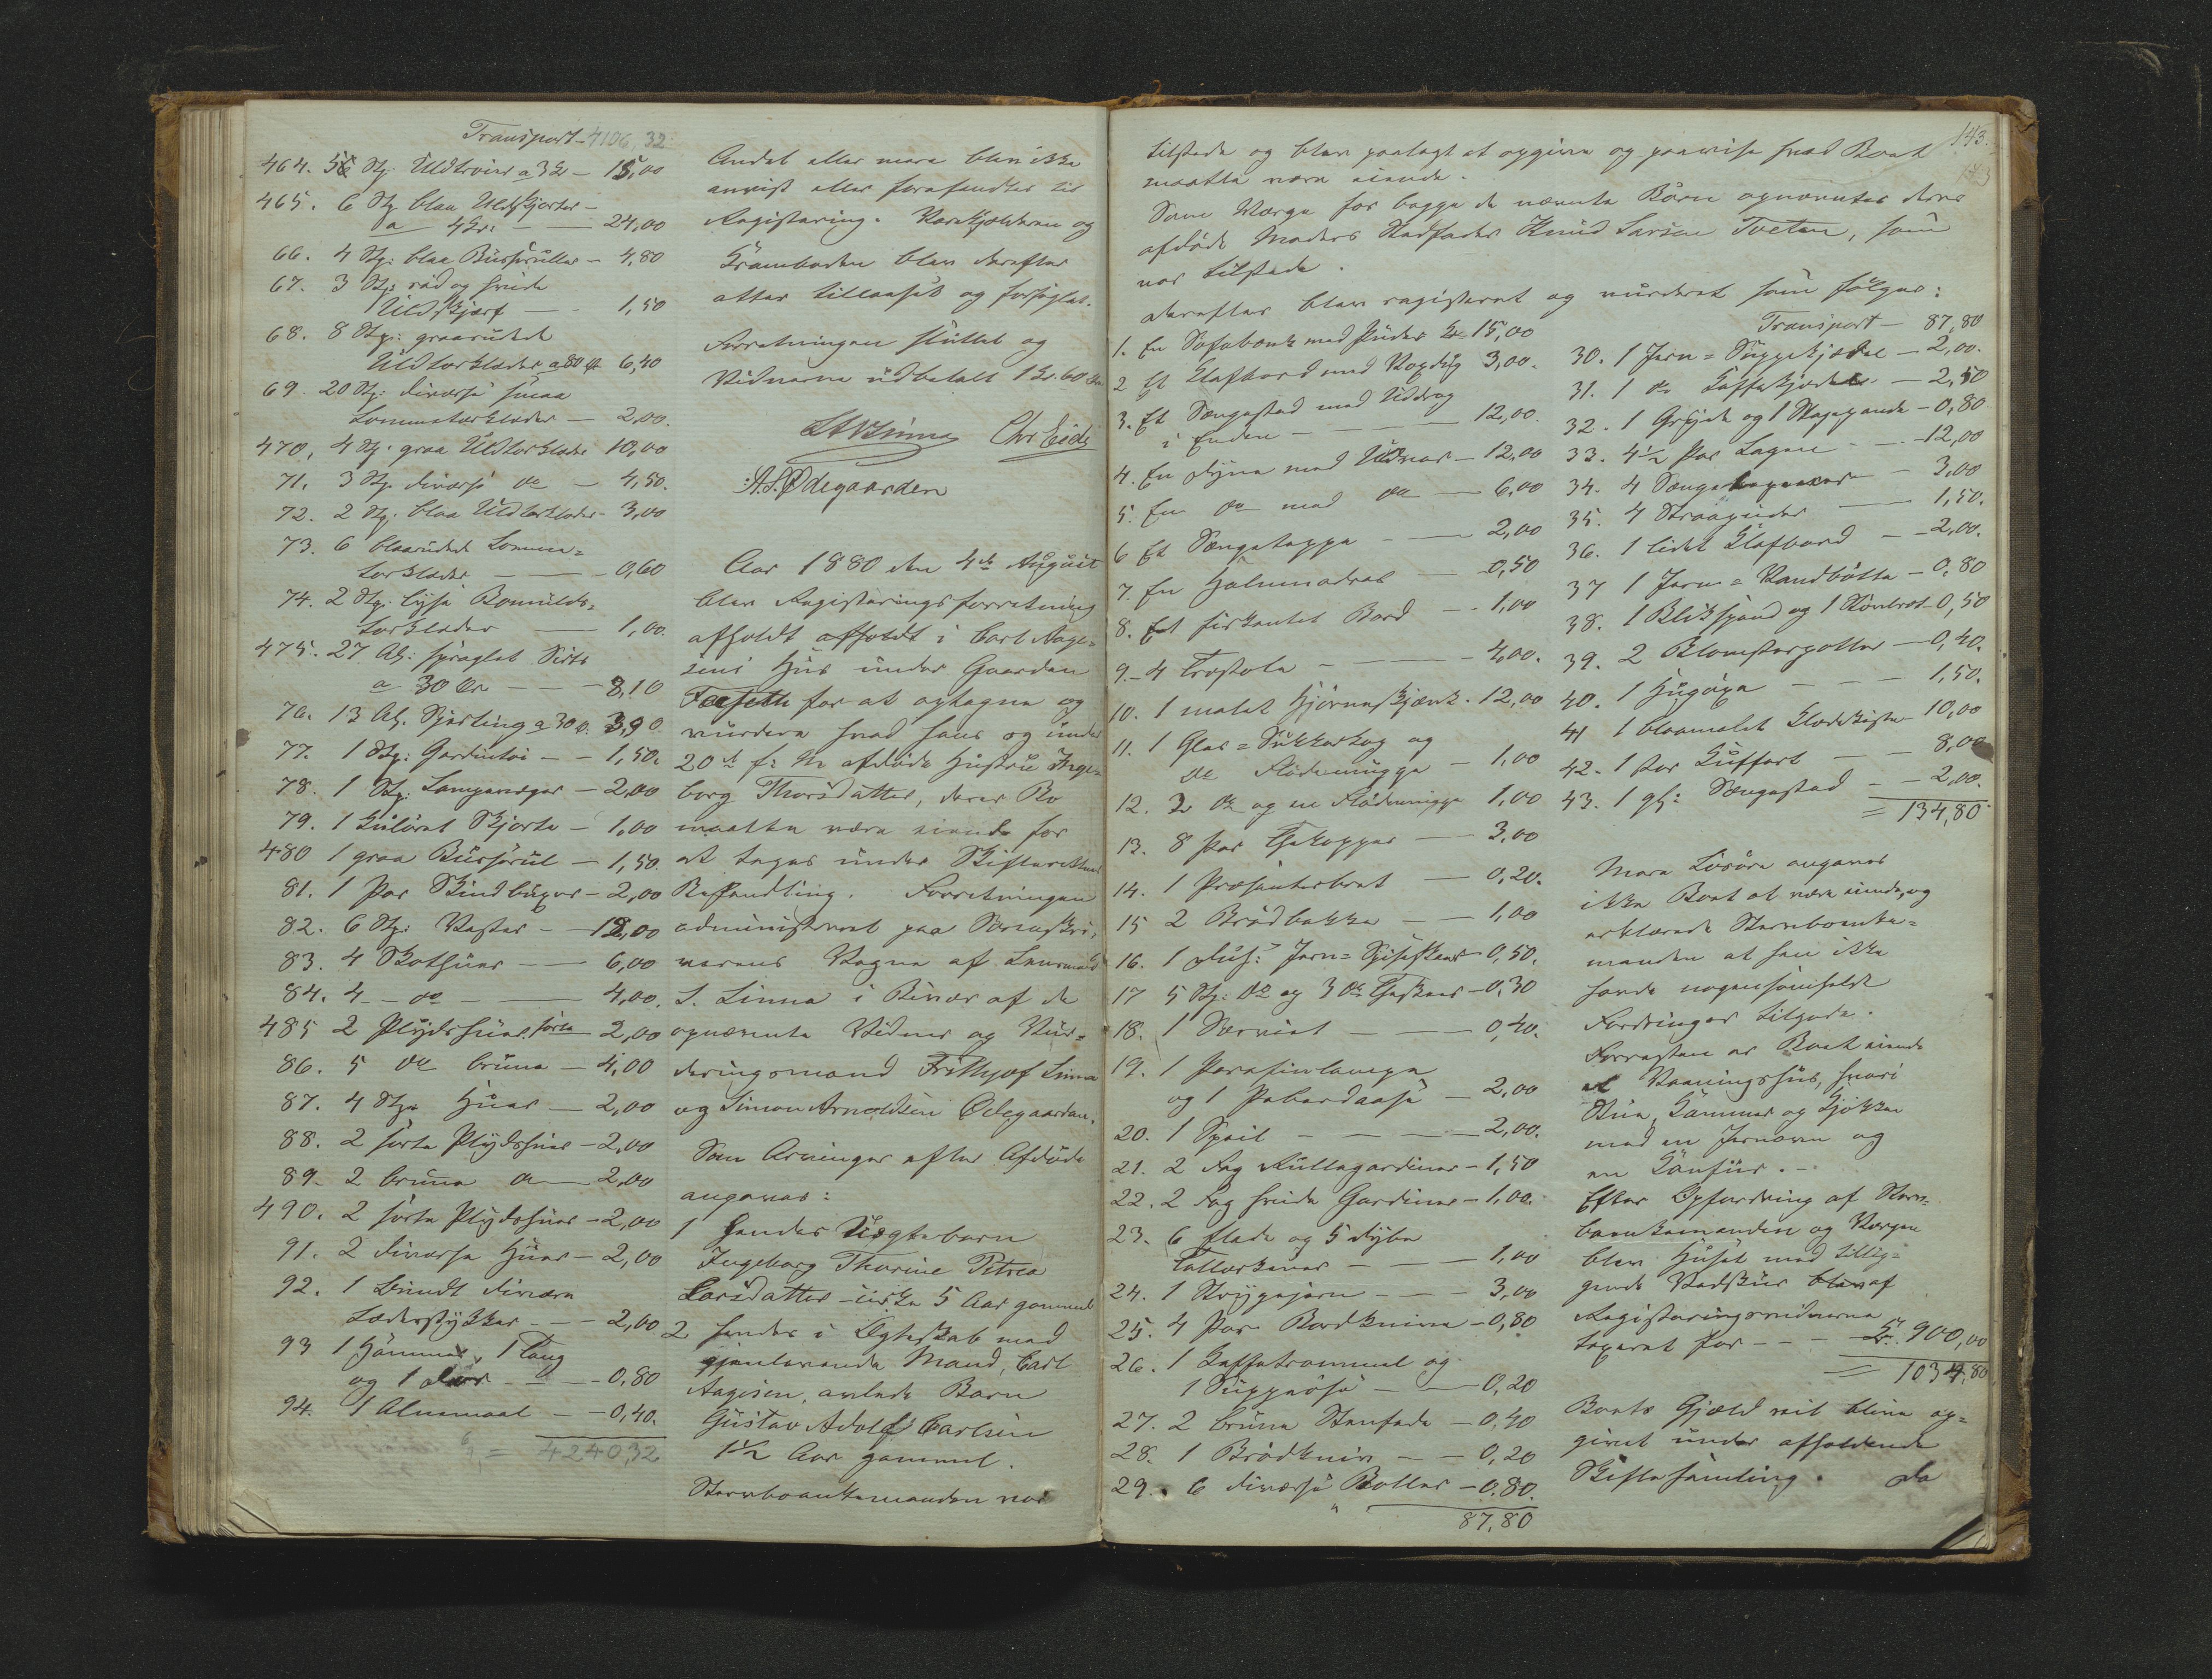 Transport - 4106,32
464. 5 Stz: Uldtrøier a 3 Kr - 15,00
465. 6 Stz blaa Uldskjorter -
a 4 Kr: - - 24,00
66. 4 Stz: blaa Busseruller - 4,80
67. 3 Stz: rød og hvide
Uldskjerf - - 1,50
68. 8 Stz: graarudede
Uldtørklæder a 80 Ør 6,40
69. 20 Stz: diverse smaa
Lommetørklæder - 2,00.
470, 4 Stz: graa Uldtørklæder 10,00
71. 3 Stz diverse do - 4,50.
72. 2 Stz: blaa Uldtørklæder - 3,00
73. 6 blaarudede Lomme=
tørklæder - - 0,60
74. 2 Stz: lyse Bomulds=
tørklæder - 1,00.
475. 27 Al: spraglet Sirts
a 30 Øre - - 8,10
76. 13 Al. Sjirting a 30 Ø. 3,90
77. 1 Stz: Gardintøi - - 1,50.
78. 1 Stz: Lampevæger - 2,00
79. 1 kulørt Skjorte - 1,00
480 1 graa Busserul - 1,50.
81. 1 Par Skindbuxer - 2,00
82. 6 Stz: Vester - - 12,00
83. 4 Skothuer - 6,00
84. 4 - do - - 4,00.
485 2 Plydshuer sorte - 2,00
86. 5 do brune - 4,00
87. 4 Stz Huer - 2,00
88. 2 sorte Plydshuer - 2,00
89. 2 brune do - 2,00
490. 2 sorte Plydshuer - 2,00
91. 2 diverse Huer - 2,00
92. 1 Bundt diverse
Læderstykker - - 2,00
93 1 Hammer, 1 Tang
og 1 - - 0,80
94. 1 Alnemaal - - 0,40.
= 4240,32
Andet eller mere blev ikke
anvist eller forefandtes til
Registrering. Varekjælderen og
Kramboden blev derefter
atter tillaaset og forseglet.
Forretningen sluttet og
Vidnerne udbetalt 1 Kr. 60 Øre
Linna Chr Eide
A. S. Ødegaarden
Aar 1880 den 4de August
blev Registreringsforretning
afholdt afholdt i Carl Aage=
sens Hus under Gaarden
for at optegne og
vurdere hvad hans og under
20de f: M afdøde Hustru Inge=
borg Thorsdatter, deres Bo
maatte være eiende for
at tages under Skifterettens
Behandling. Forretningen
administreret paa Sorenskri-
verens Vegne af Lensmand
S. Linna i Bivær af de
opnævnte Vidner og Vur=
deringsmænd Frithjof Linna
og Simon Arnoldsen Ødegaarden.
Som Arvinger efter Afdøde
angaves:
1 hendes Uægtebarn
Ingeborg Thorine Petrea
Larsdatter - cirka 5 Aar gammel
2 hendes i Ægteskab med
gjenlevende Mand, Carl
Aagesen, avlede Barn
Gustav Adolf Carlsen
1 1/2 Aar gammel.
Stervboenkemanden var
143.
tilstede og blev paalagt at opgive og paavise hvad Boet
maatte være eiende.
Som Værge for begge de nævnte Børn opnævntes deres
afdøde Moders Stedfader Knud Larsen Tveten, som
var tilstede.
derefter blev registreret og vurderet som følger:
1. En Sofabænk med Puder Kr 15,00
2 Et Klafbord med Voxdug 3,00.
3. Et Sengested med Uddrag
i Enden - - - 12,00.
4. En Dyne med Uldvar - 12,00
5. En do med do - 6,00
6 Et Sengeteppe - - 2,00
7. En Halmmadras - 0,50
8. Et firkantet Bord - - 1,00
9. - 4 Træstole - - - 4,00.
10. 1 malet Hjørneskjænk. 12,00
11. 1 Glas = Sukkerkop og
do Flødemugge - 1,00
12. 2 do og en Flødemugge 1,00
13. 8 Par Thekopper - 3,00
14. 1 Præsenterbret - 0,20.
15 2 Brødbakker - - 1,00
16. 1 Dus: Jern = Spiseskeer 0,50.
17 5 Stz: do og 3 do Theskeer - 0,30
18. 1 Serviet - - 0,40.
19. 1 Parafinlampe
og 1 Peberdaase - 2,00
20. 1 Speil - - - 2,00.
21. 2 Fag Rullegardiner - 1,50
22. 2 Fag hvide Gardiner - 1,00.
23. 6 flade og 5 dybe
Tallerkener - - - 1,00
24. 1 Strygejern - - - 3,00
25. 4 Par Bordknive - 0,80
26. 1 Kaffetrommel og
1 Suppeøse - - 0,20
27. 2 brune Stenfade - 0,40
28. 1 Brødkniv - - 0,20
29. 6 diverse Boller - 0,80.
87,80
Transport - 87,80
30. 1 Jern = Suppekjedel - 2,00.
31. 1 do Kaffekjedel - 2,50
32. 1 Gryde og 1 Stegepande - 0,80
33. 4 1/2 Par Lagen - - 12,00
34. 4 - 3,00
35. 4 Straapuder - 1,50.
36. 1 lidet Klafbord - - 2,00.
37 1 Jern = Vandbøtte - 0,80
38. 1 Blikspand og 1 - 0,50
39. 2 Blomsterpotter - 0,40.
40. 1 Hugøxe - - - 1,50.
41 1 blaamalet Klædekiste 10,00
42. 1 stor Kuffert - - 8,00
43. 1 gl: Sengested - - 2,00.
= 134,80
Mere Løsøre angaves
ikke Boet at være eiende, og
erklærede Stervboenke=
manden at han ikke
havde nogensomhelst
Fordringer tilgode.
Forresten er Boet eiende
et Vaaningshus, hvori
Stue, Kammer og Kjøkken
med en Jernovn og
en Komfur. -
Efter Opfordring af Sterv=
boenkemanden og Værgen
blev Huset med tillig=
gende Vedskur blev af
Registreringsvidnerne
taxeret for - - - Kr. 900,00
= 1034,80
Boets Gjæld vil blive op=
givet under afholdende
Skiftesamling. Da